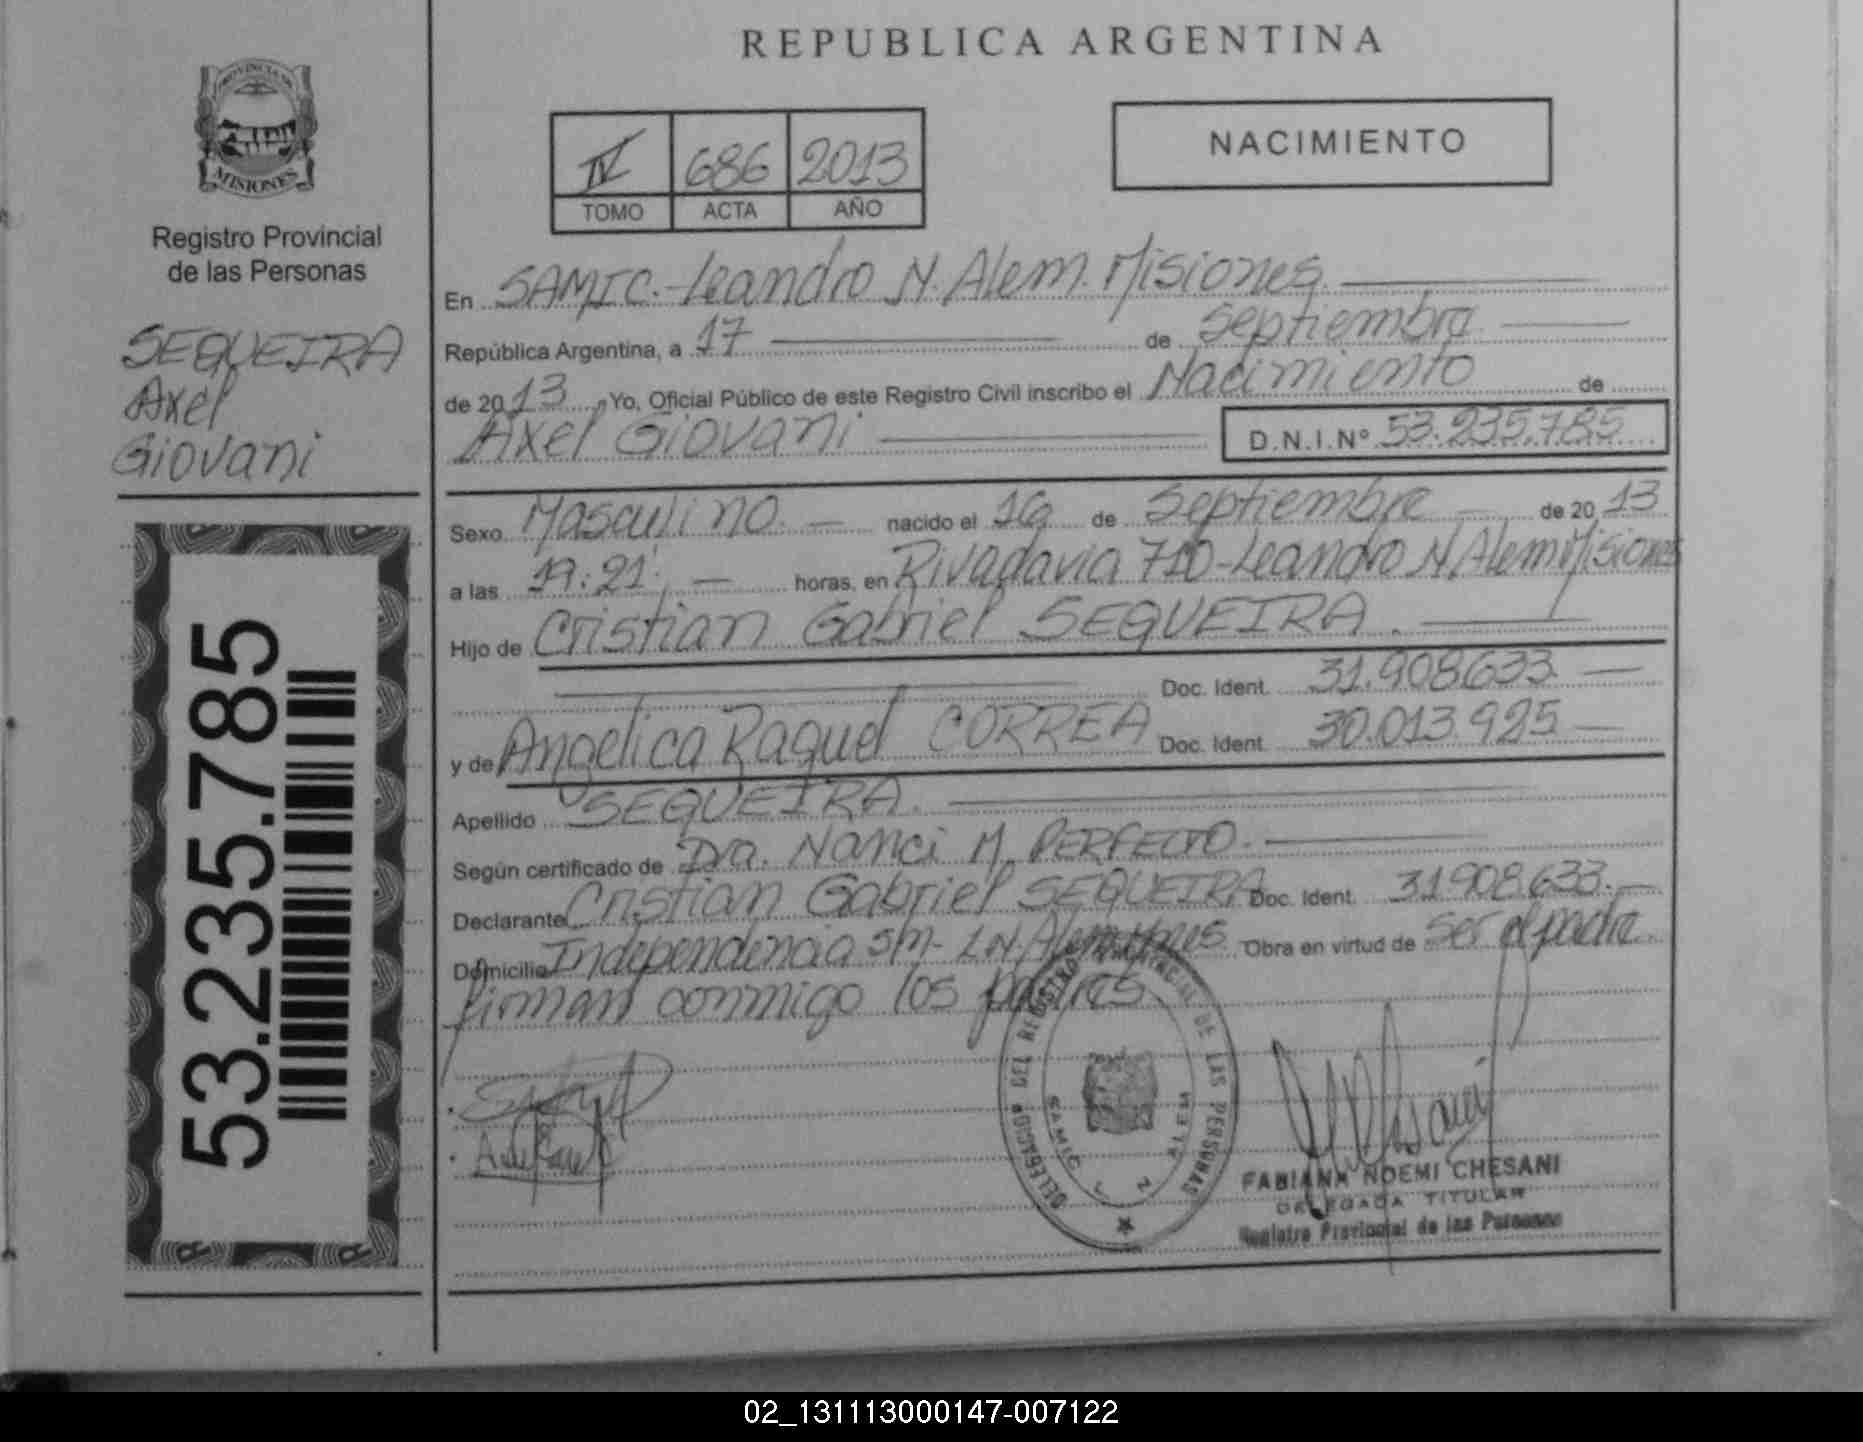 REPUBLICA ARGENTINA
PROVINCIA DE
MISIONES
Registro Provincial
de las Personas
SEQUEIRA
Axel
Giovani
53.235.785
IV 686 2013
TOMO ACTA AÑO
NACIMIENTO
En SAMIC.-Leandro N. Alem. Misiones.
República Argentina, a 17 de Septiembre
de 2013 Yo, Oficial Público de este Registro Civil inscribo el Nacimiento de
Axel Giovani D.N.I.Nº 53.235.785
Sexo Masculino. nacido el 16 de Septiembre de 2013
a las 19:21 horas, en Rivadavia 710-Leandro N. Alem Misiones
Hijo de Cristian Gabriel SEQUEIRA.
Doc. Ident. 31.908633.
y de Angelica Raquel CORREA Doc. Ident. 30.013.925
Apellido SEQUEIRA.
Según certificado de Dra. Nanci M. PERFECTO.
Declarante Cristian Gabriel SEQUEIRA Doc. Ident. 31908.633.
Domicilio Independencia s/n- LN Alem Obra en virtud de ser el padre.
firman conmigo los padres.
DELEGACION DEL REGISTRO PROVINCIAL DE LAS PERSONAS
SAMIC L N ALEM
FABIANA NOEMI CHESANI
DELEGADA TITULAR
Registro Provincial de las Personas
02_131113000147-007122